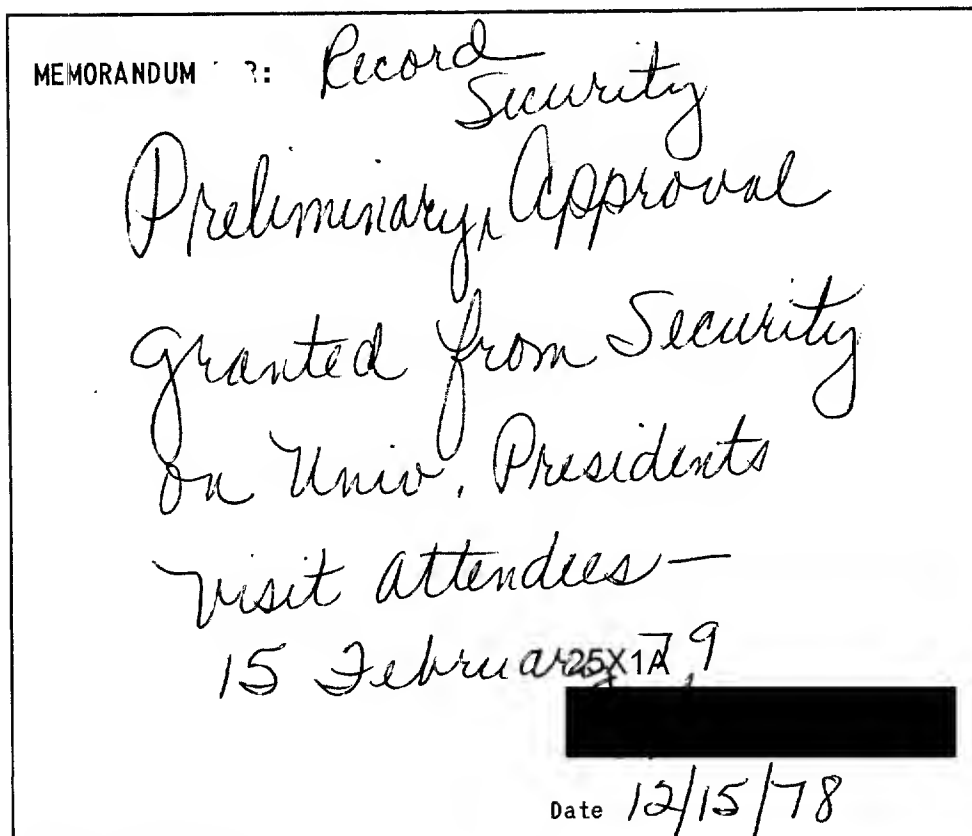 MEMORANDUM R: Record
Security
Preliminary, Approval
granted from Security
on Univ. Presidents
Visit attendees—
15 February 79
25X1A
Date 12/15/78